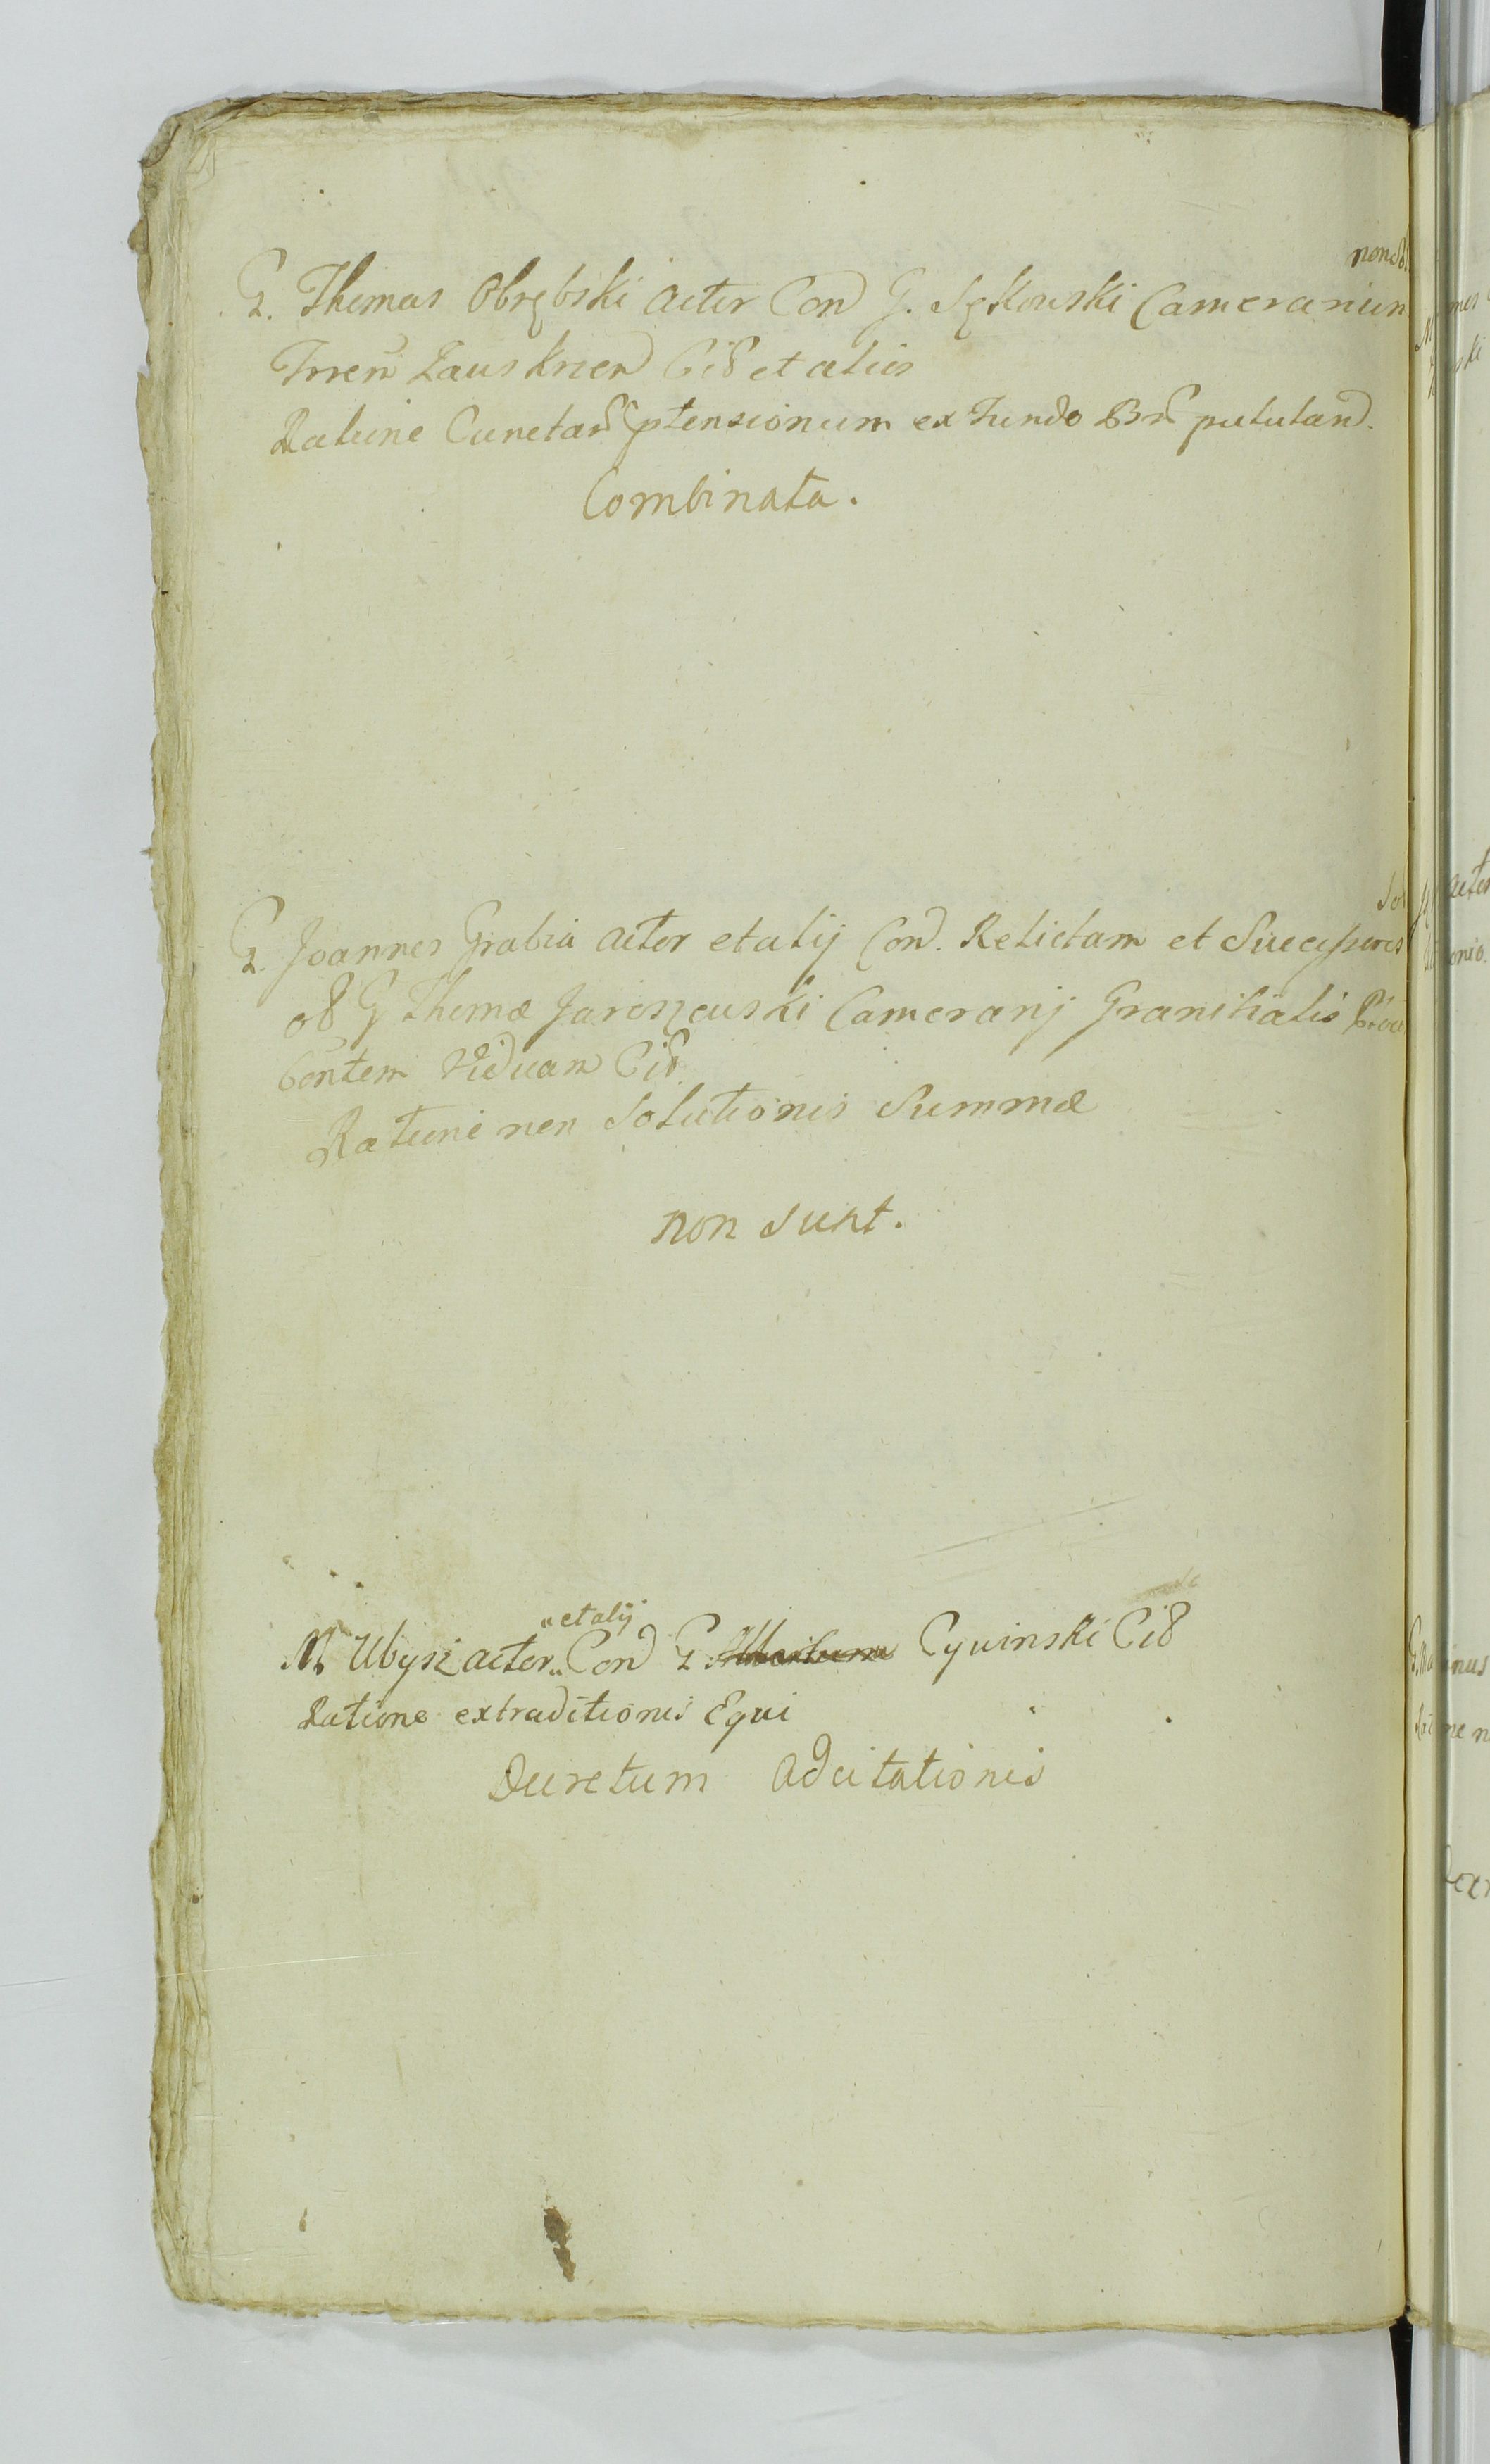 non sol
G. Thomas Obrębski actor Con G. Sękowski Camerarium
Trren Zauskrien Cit et alios
Ratione Cunctar ptensionum ex Fundo Br pululand.
Combinata.
Sol
G. Joannes Grabia actor et alij Con. Relictam et Successores
ol G Thomæ Jaroszewski Cameranij Granitialis
bontem Viduam Cit
Ratione non Solutionis Summæ
non sunt.
et alij
M. Ubysz actor Con G Cywinski Cit
Ratione extraditionis Equi
Decretum adcitationis